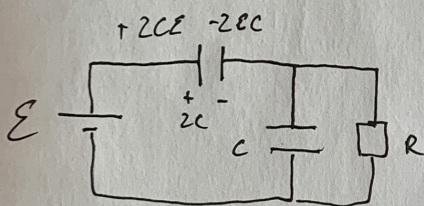 +2CE -2EC
+ -
2C
E
C
R